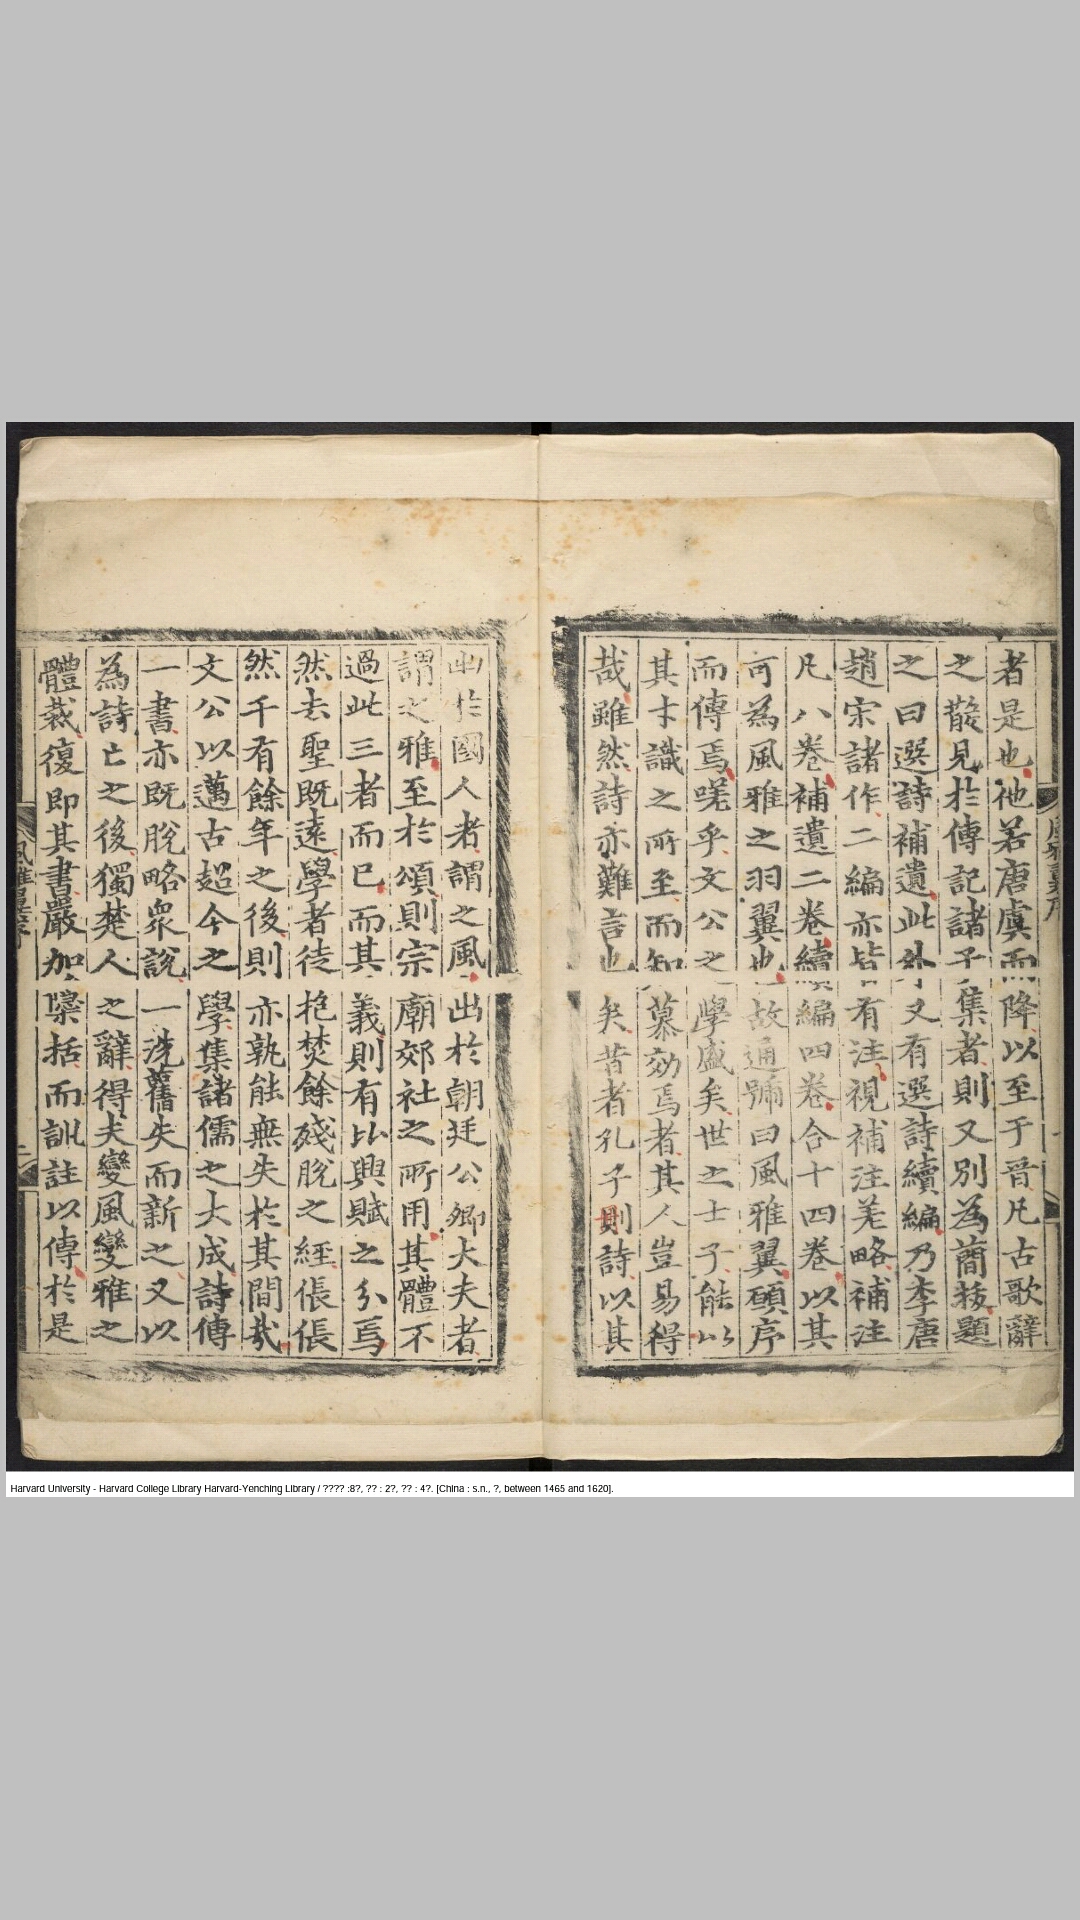 者是也他若唐虞而降以至于晉凡古歌辭
之散見於傳記諸子集者則又別為蕳拔題
之曰選詩補遺此外又有選詩續編乃李唐
趙宋諸作二編亦皆有注視補注差略補注
凡八卷補遺二卷續編四卷合十四卷以其
可為風雅之羽翼也故通號曰風雅翼碩序
而傳焉嗟乎文公之學盛矣世之士子能以
其才識之所至而知慕効焉者其人豈易得
哉雖然詩亦難言也矣昔者孔子則詩以其
出於國人者謂之風出於朝廷公卿大夫者
謂之雅至於頌則宗廟郊社之所用其體不
過此三者而已而其義則有比興賦之分焉
然去聖既遠學者徒抱焚餘殘脫之經倀倀
然千有餘年之後則亦孰能無失於其間哉
文公以邁古超今之學集諸儒之大成詩傳
一書亦既脫略眾說一洗舊失而新之又以
為詩亡之後獨楚人之辭得夫變風變雅之
體裁復即其書嚴加檃括而訓註以傳於是
風雅翼序
二
Harvard University - Harvard College Library Harvard-Yenching Library / ???? :8?, ?? : 2?, ?? : 4?. [China : s.n., ?, between 1465 and 1620].